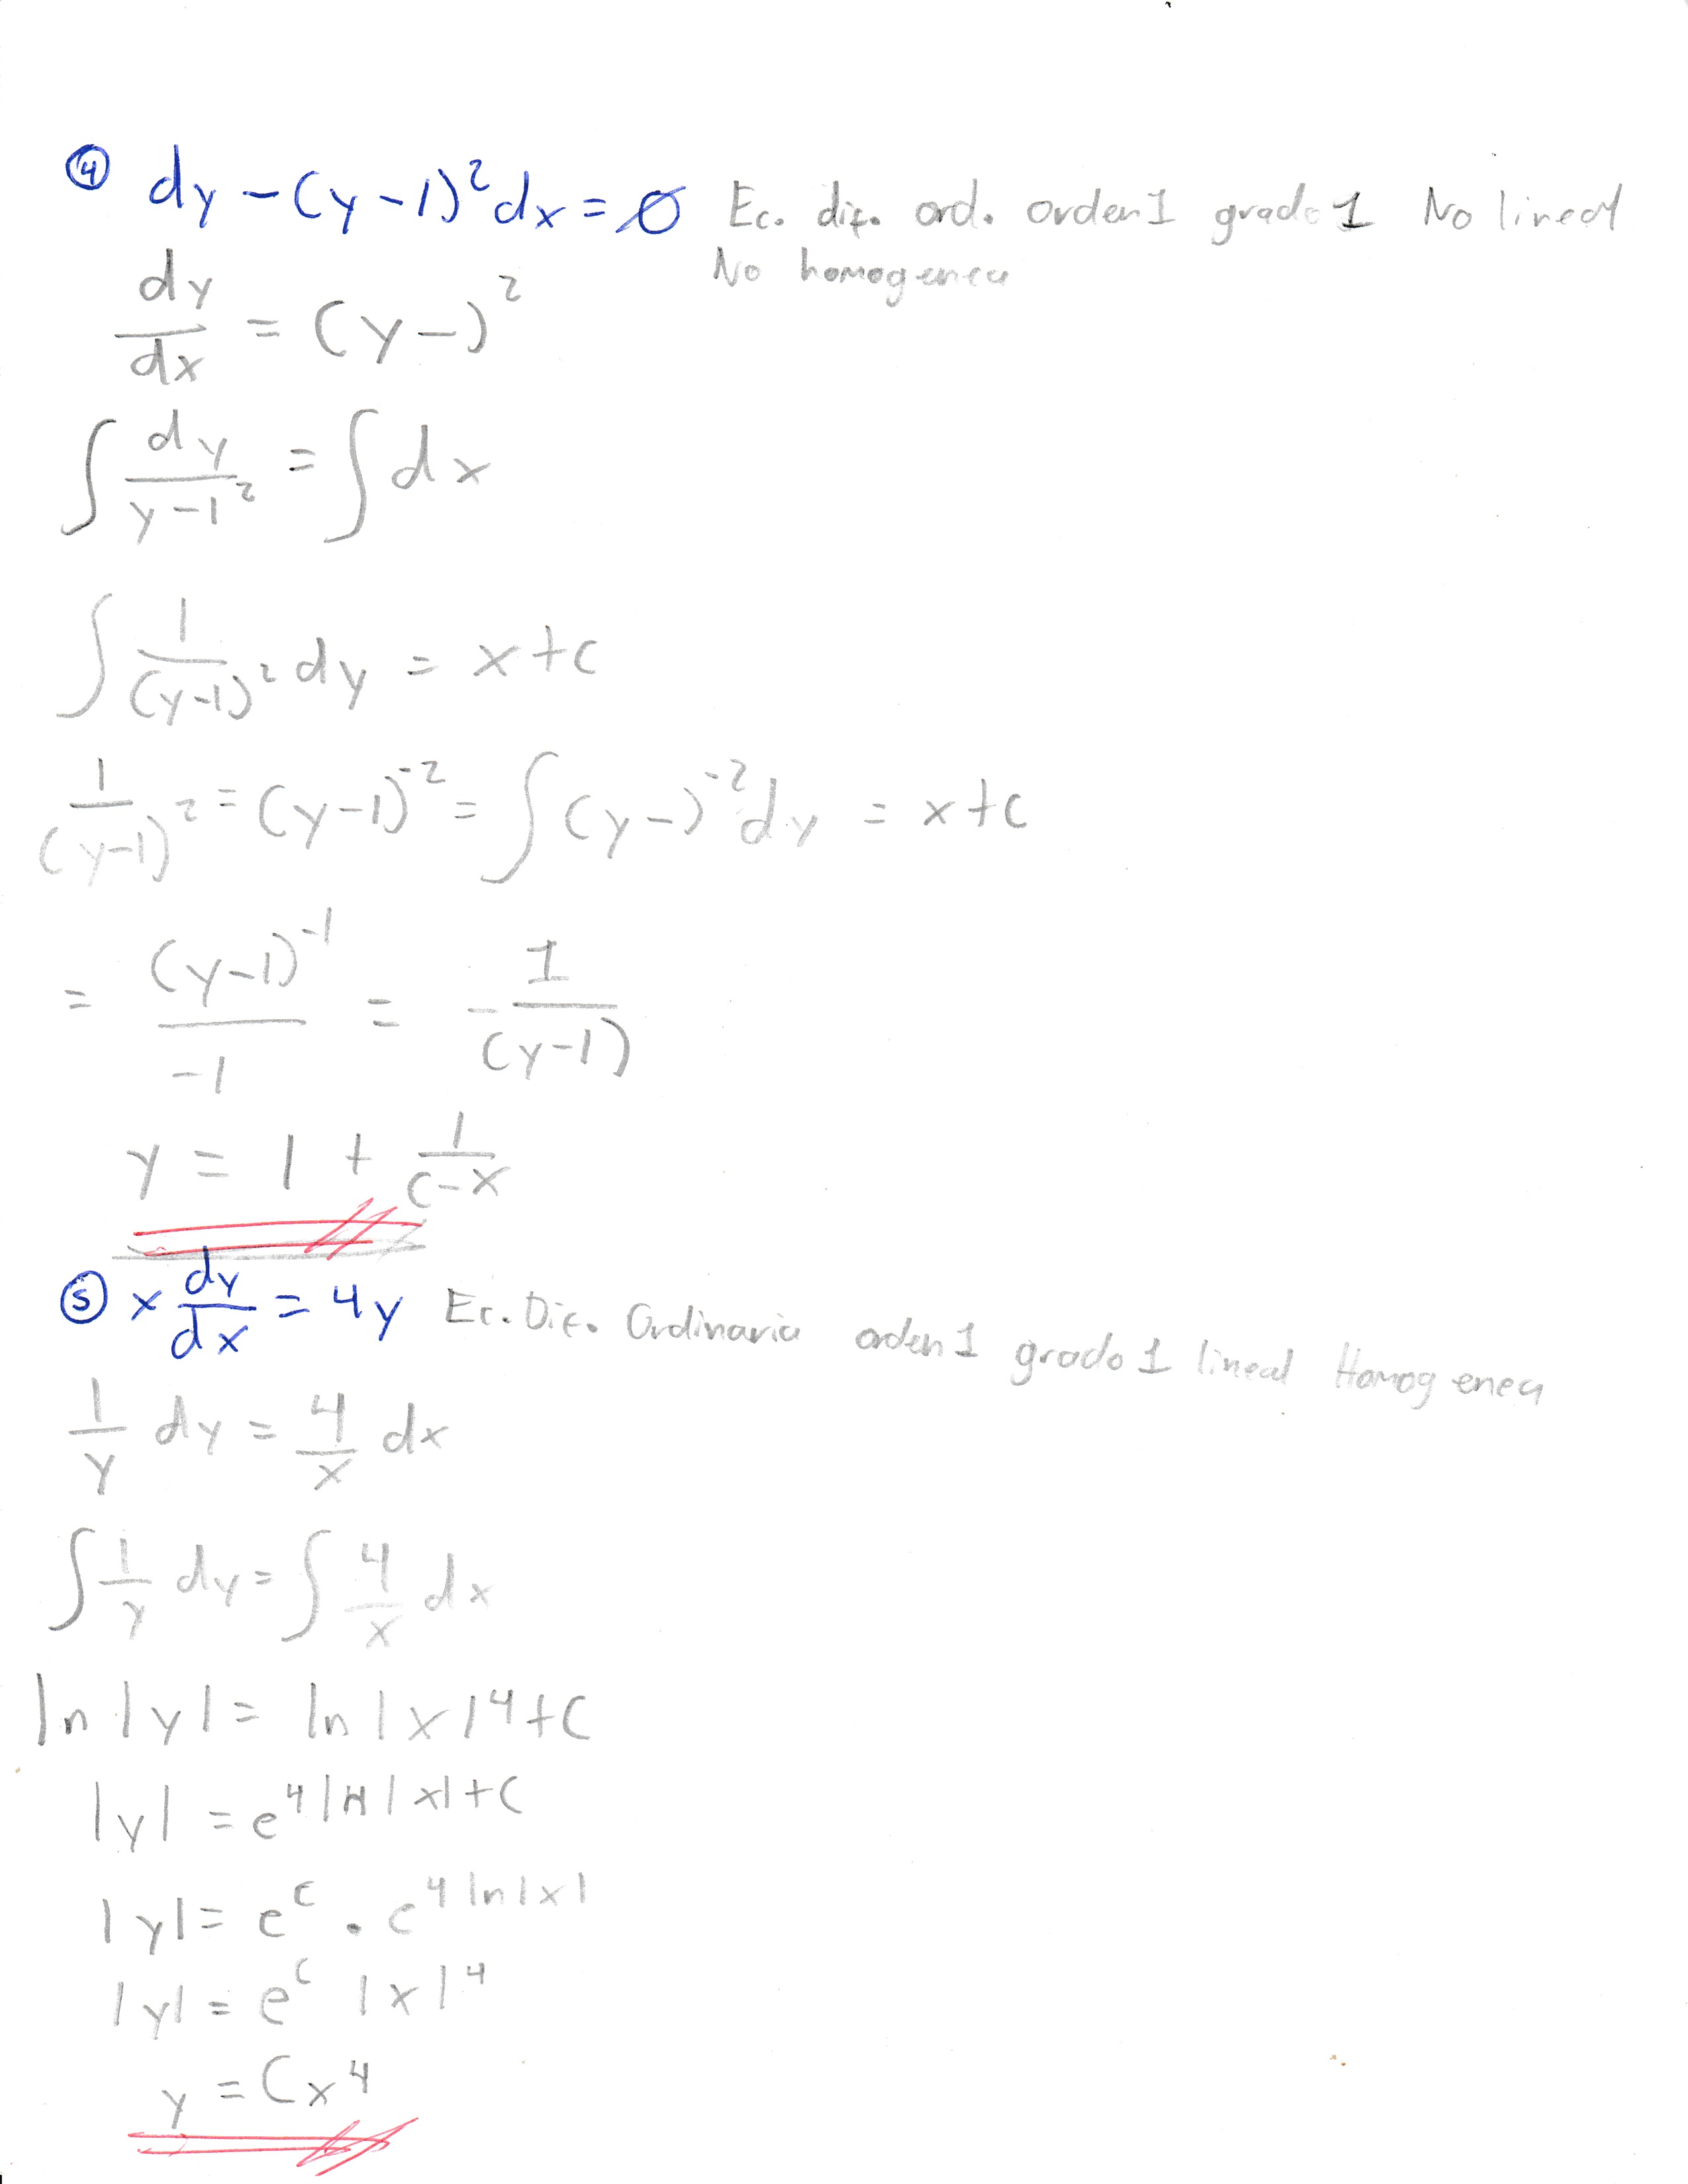 ④ dy - (y-1)² dx = 0 Ec. dif. ord. orden 1 grado 1 No lineal
No homogenea
dy/dx = (y-)²
∫ dy/y-1² = ∫ dx
∫ 1/(y-1)² dy = x+c
1/(y-1)² = (y-1)⁻² = ∫ (y-)⁻² dy = x+c
= (y-1)⁻¹/-1 = - 1/(y-1)
y = 1 + 1/c-x
⑤ x dy/dx = 4y Ec. Dif. Ordinaria orden 1 grado 1 lineal Homogenea
1/y dy = 4/x dx
∫ 1/y dy = ∫ 4/x dx
ln |y| = ln |x|⁴ + C
|y| = e^4 ln|x|+C
|y| = e^c · e^4 ln|x|
|y| = e^c |x|⁴
y = Cx⁴